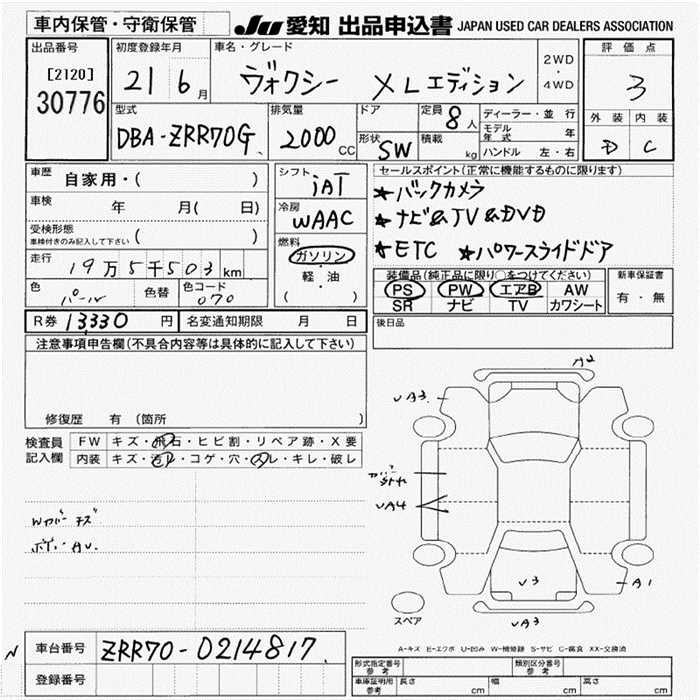 車内保管・守衛保管 JU 愛知 出品申込書 JAPAN USED CAR DEALERS ASSOCIATION
出品番号 初度登録年月 車名・グレード 評価点
[2120] 21 6月 ヴォクシー XLエディション 2WD・4WD 3
30776
型式 排気量 ドア 定員 8人 ディーラー・並行 外装 内装
DBA-ZRR70G 2000CC 形状 SW 積載 kg モデル年式 年 D C
ハンドル 左・右
車歴 自家用・( ) シフト iAT セールスポイント(正常に機能するものに限ります)
車検 年 月( 日) 冷房 WAAC ★バックカメラ
受検形態 ( ) ★ナビ&TV&DVD
車検付きのみ記入して下さい 燃料 ★ETC ★パワースライドドア
走行 19万5千503km ガソリン
軽・油
( )
色 パール 色替 色コード 070
装備品(純正品に限り○をつけてください) 新車保証書
PS PW エアB AW 有・無
SR ナビ TV カワシート
R券 13330円 名変通知期限 月 日 後日品
注意事項申告欄(不具合内容等は具体的に記入して下さい)
修復歴 有 (箇所 )
検査員記入欄 FW キズ・飛石・ヒビ割・リペア跡・X要
内装 キズ・汚レ・コゲ・穴・スレ・キレ・破レ
Wカバーキズ
ボディーAU.
A2
UA3
UA4
U3
A1
UA3
スペア
A-キズ E-エクボ U-凹み W-補修跡 S-サビ C-腐食 XX-交換済
N 車台番号 ZRR70-0214817
登録番号
形式指定番号 参考 類別区分番号 参考
車庫証明用 参考 長さ cm 幅 cm 高さ cm